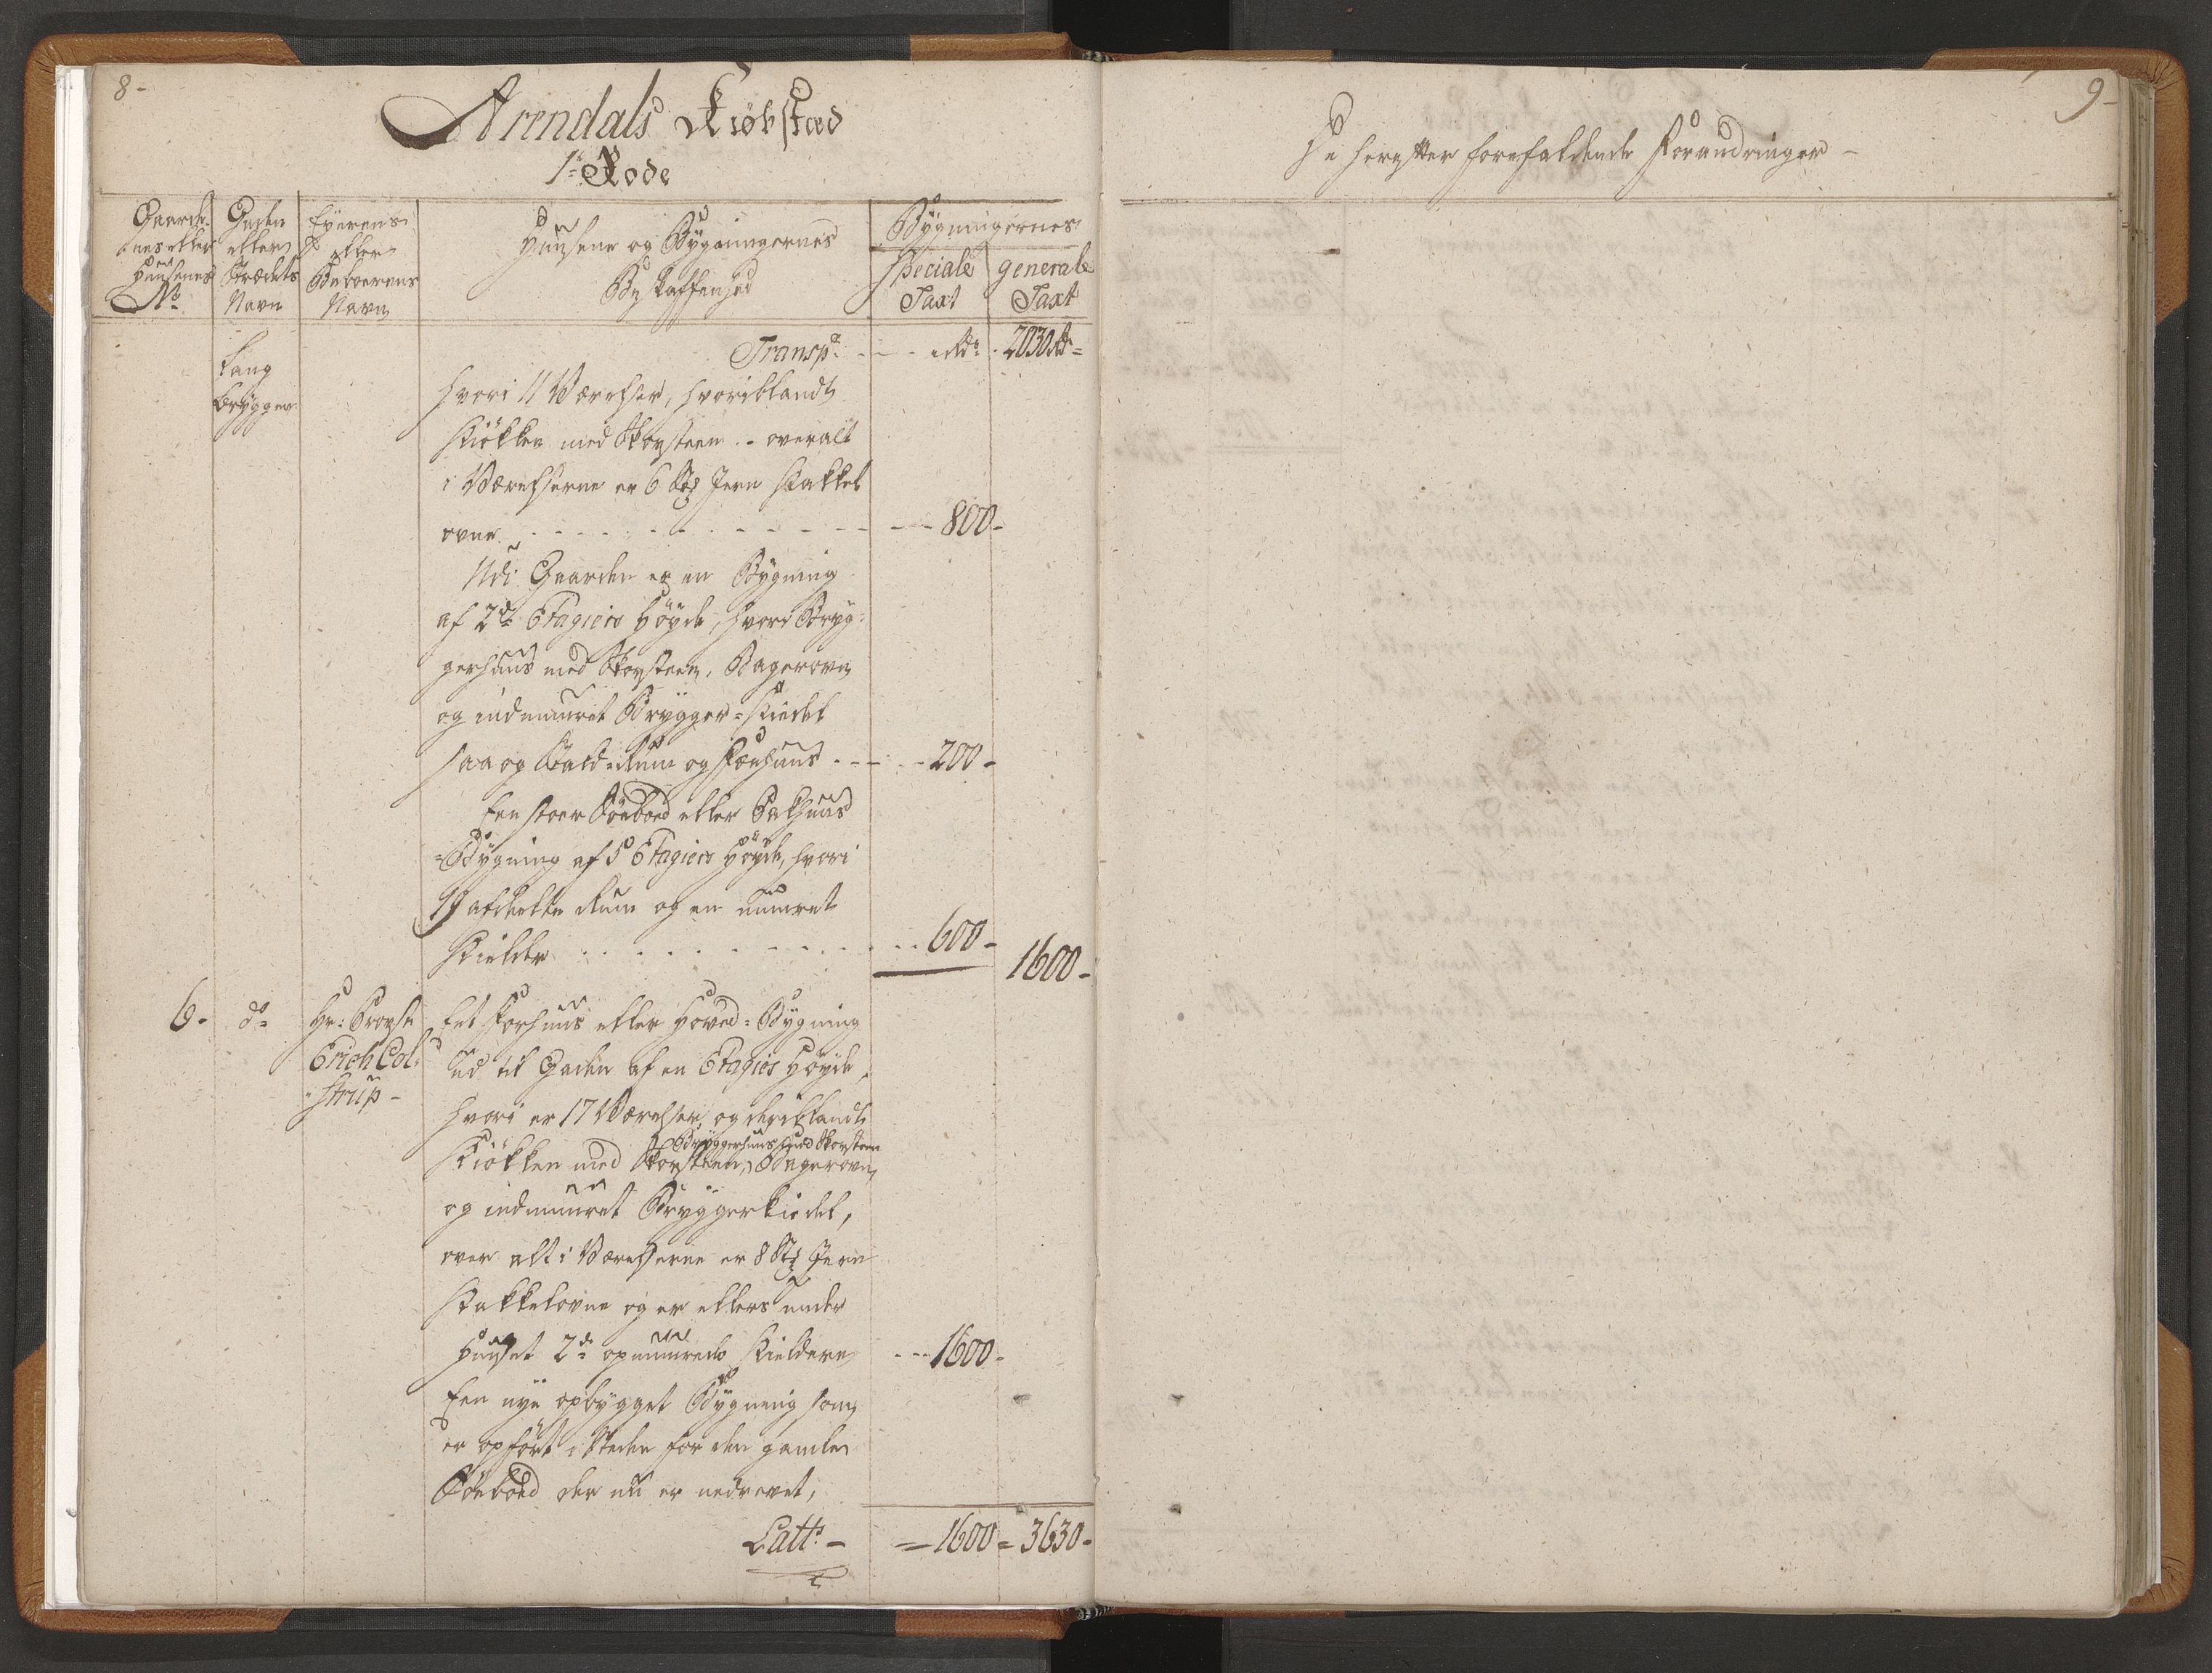 8-
Arendals Kiøbstæd
1te Rode
Gaarde-
nes eller
Huusenes
No
Gaden
eller
Strædets
Navn
Eyerens
eller
Beboerens
Navn
Huusene og Bygningernes
Beskaffenhed
Bygningernes
Speciale
Taxt
generale
Taxt
Transpt - - - Rdr. 2030 Rdr =
Lang
bryggen
hvori 11 Værelser, hvoriblandt
Kiökken med Skorsteen .. overalt
i Værelserne er 6 Stk Jern Kakkel
ovne - - - - - 800-
Udi Gaarden er en Bygning
af 2de Etagiers Höyde, hvori Bryg-
gerhuus med Skorsteen, Bagerovn
og indmuuret Brygger=Kiedel
saa og Rum og Fæehuus - - - 200-
Een stoer Söeboed eller Pakhuus
=Bygning af 5 Etagiers Höyde, hvori
afdeelte Rum og en muuret
Kielder - - - - - 600-
1600-
6. do Hr: Provst
Erich Col-
strup -
Eet Forhuus eller Hoved=Bygning
ud til Gaden af en Etagies Höyde,
hvori er 17 Værelser, og deriblandt
Bryggerhuus med Skorsteen
Kiökken med Skorsteen, Bagerovn
og indmuuret Bryggerkiedel,
over alt i Værelserne er 8 Stk Jern
Kakkelovne og er ellers under
Huuset 2de opmuurede Kieldere - - - 1600-
Een nye opbygget Bygning som
er opfört i Steden for den gamle
Söeboed der nu er nedrevet,
Latt. - = 1600 = 3630-
9-
De herefter forefaldende Forandringer -